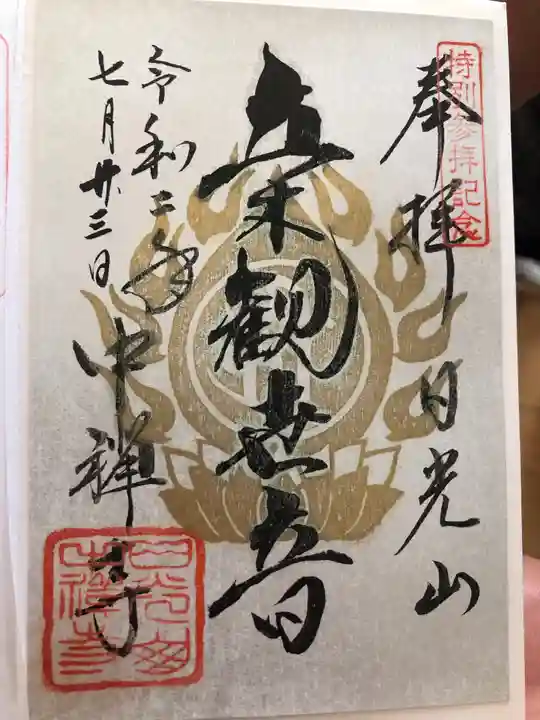 特別参拝記念
奉拝 日光山
立木観世音
令和二年
七月廿三日
中禅寺
日光山
中禅寺